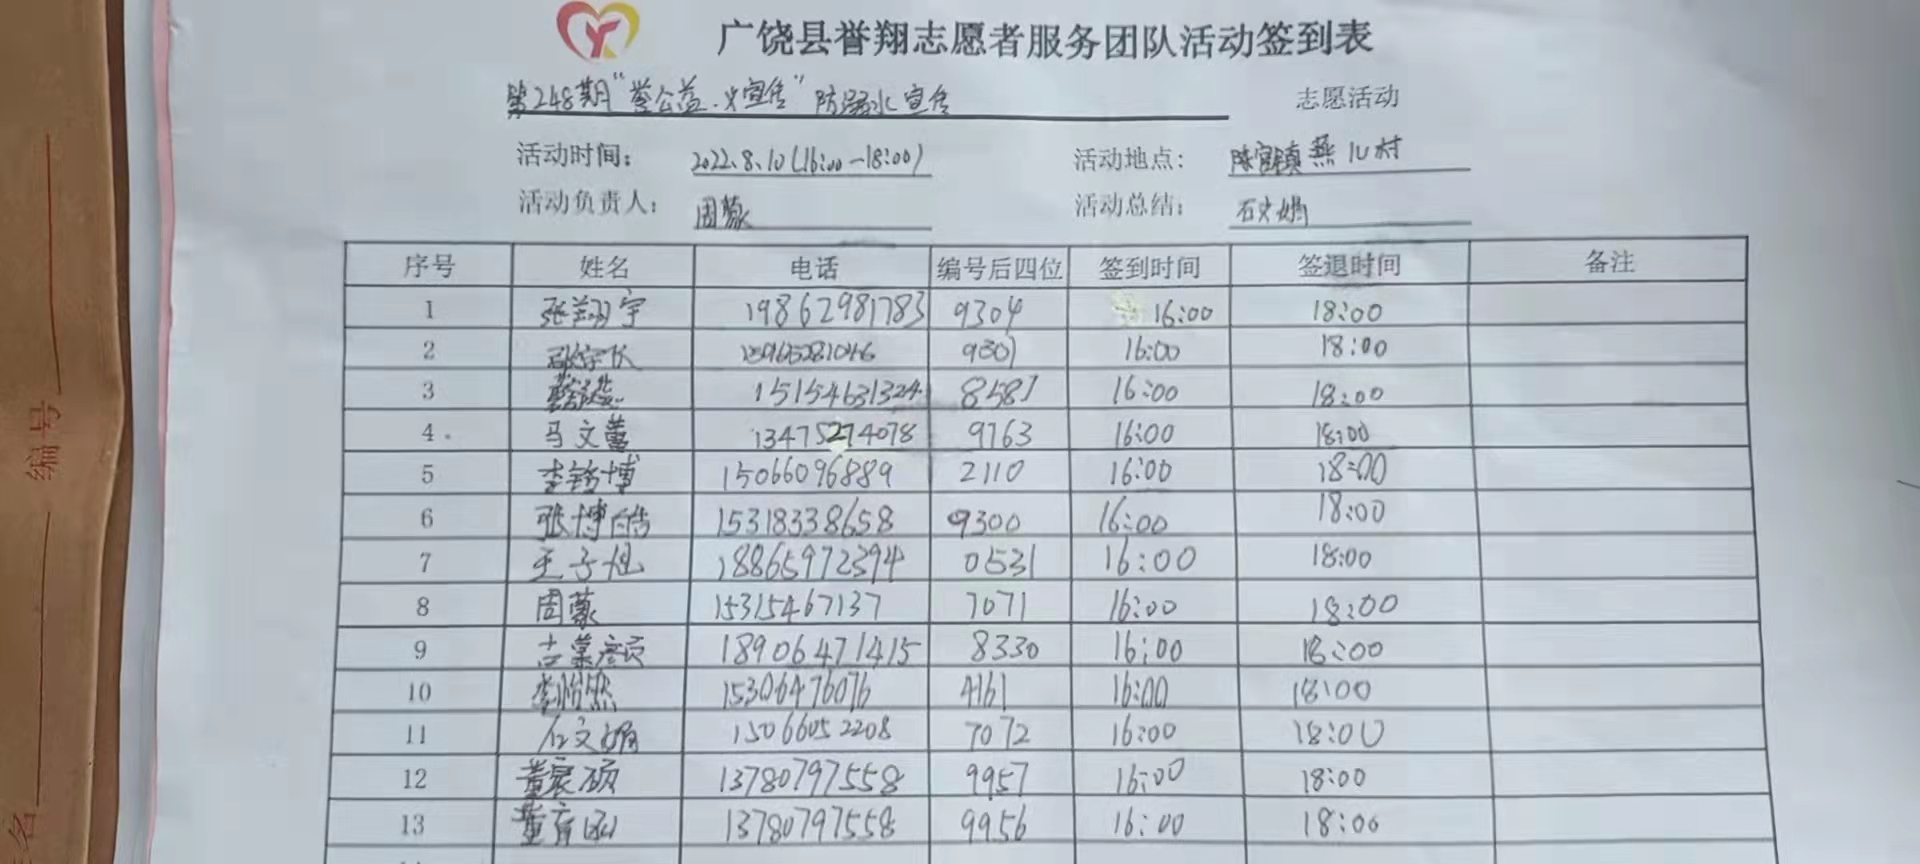 广饶县誉翔志愿者服务团队活动签到表
第248期“誉公益.义宣传”防溺水宣传 志愿活动
活动时间: 2022.8.10(16:00-18:00) 活动地点: 陈官镇燕儿村
活动负责人: 周蒙 活动总结: 石文娟
序号 姓名 电话 编号后四位 签到时间 签退时间 备注
1 张翔宇 19862981783 9304 16:00 18:00
2 16:00 18:00
3 15154631324 8587 16:00 18:00
4 马文蕾 13475274078 9763 16:00 18:00
5 李铭博 15066096889 2110 16:00 18:00
6 张博皓 15318338658 9300 16:00 18:00
7 王子 18865972394 0531 16:00 18:00
8 周蒙 15315467137 7071 16:00 18:00
9 18906471415 8330 16:00 18:00
10 李怡然 15306476076 4161 16:00 18:00
11 石文娟 15066052208 7072 16:00 18:00
12 董宸硕 13780797558 9957 16:00 18:00
13 董育函 13780797558 9956 16:00 18:00
编号
名